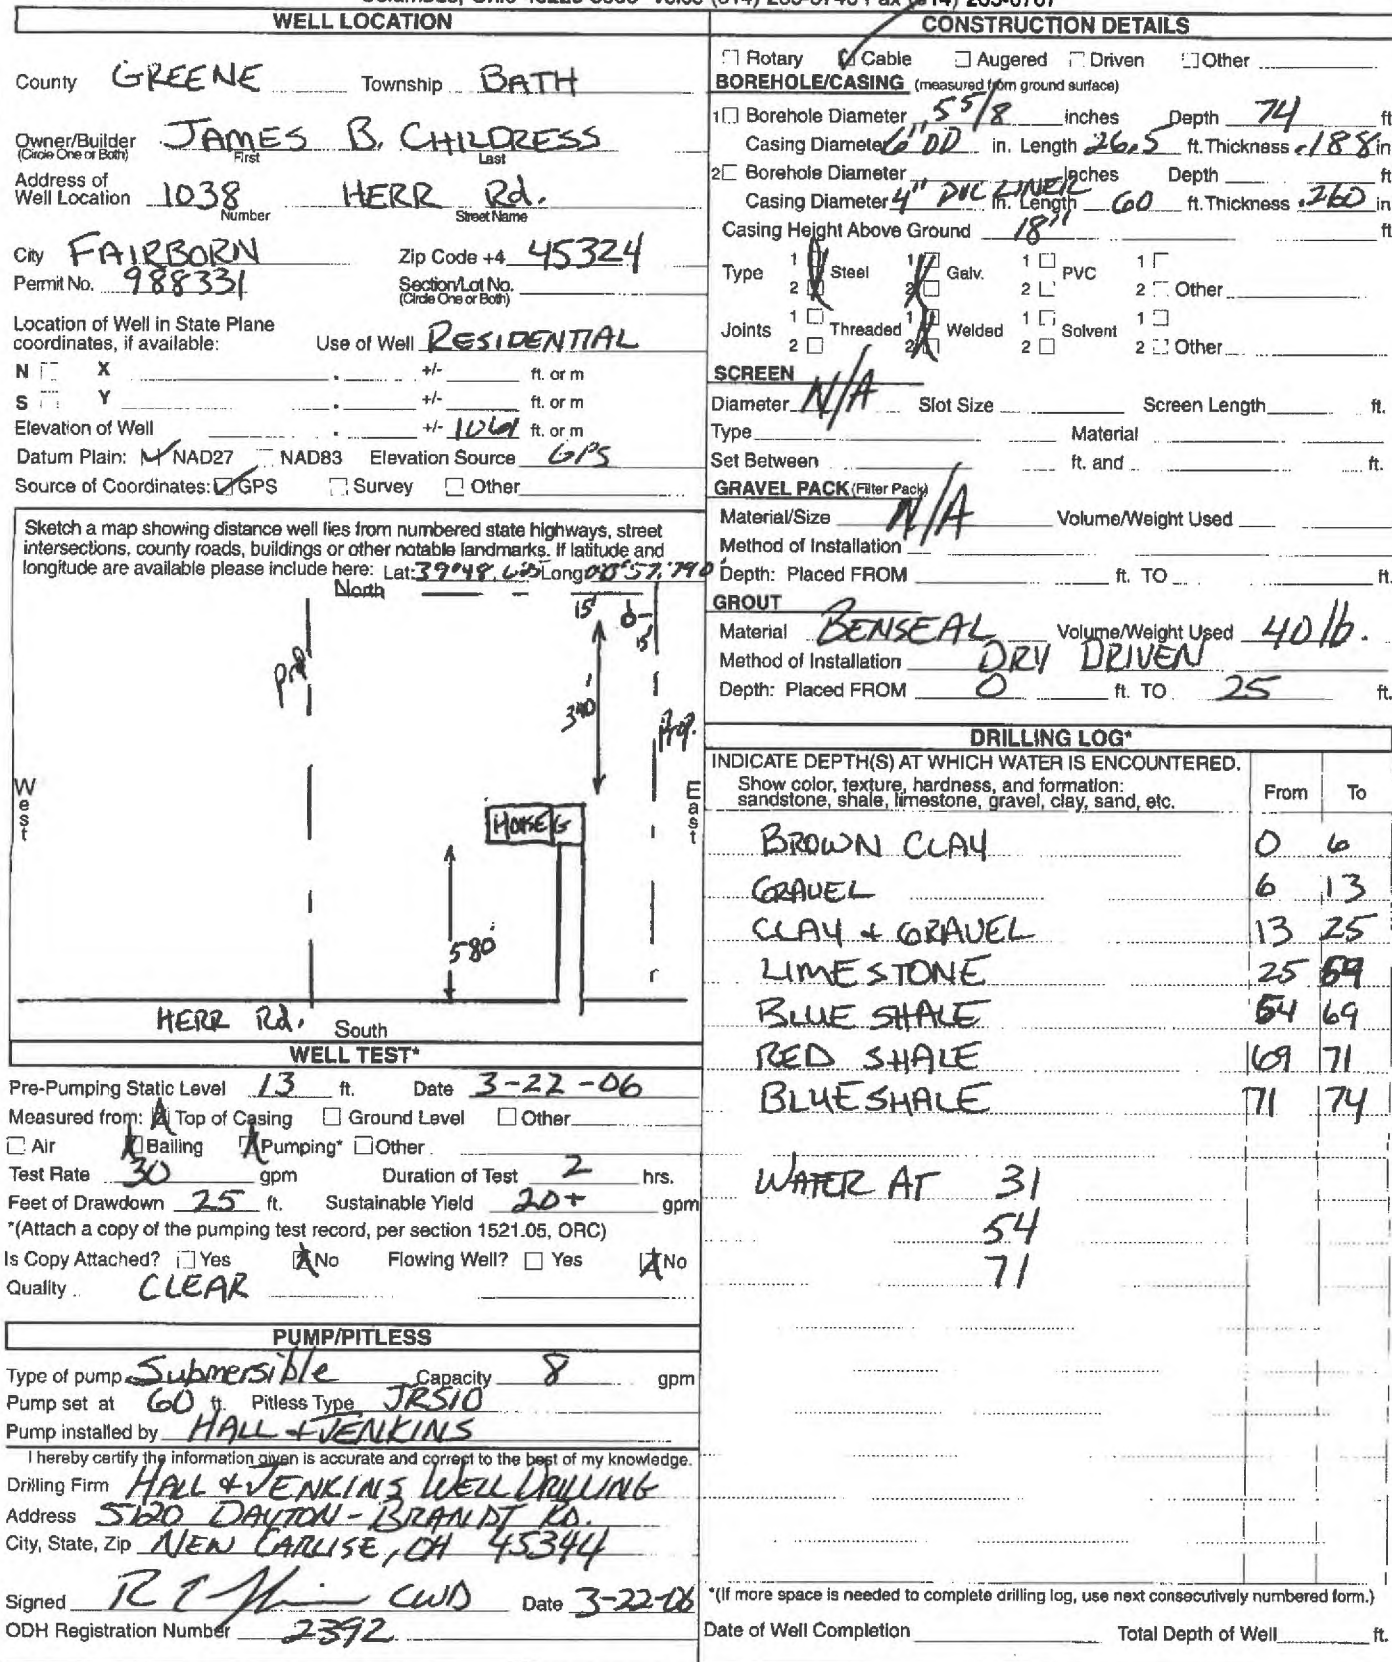 WELL LOCATION
County GREENE Township BATH
Owner/Builder JAMES B. CHILDRESS
(Circle One or Both) First Last
Address of
Well Location 1038 HERR Rd.
Number Street Name
City FAIRBORN Zip Code +4 45324
Permit No. 988331 Section/Lot No.
(Circle One or Both)
Location of Well in State Plane
coordinates, if available: Use of Well RESIDENTIAL
N X +/- ft. or m
S Y +/- ft. or m
Elevation of Well +/- 1061 ft. or m
Datum Plain: NAD27 NAD83 Elevation Source GPS
Source of Coordinates: GPS Survey Other
Sketch a map showing distance well lies from numbered state highways, street
intersections, county roads, buildings or other notable landmarks. If latitude and
longitude are available please include here: Lat: 39°48. Long 57.790
North
15'
15'
prp.
340'
prp.
West
East
HOUSE G
580'
HERR Rd. South
WELL TEST*
Pre-Pumping Static Level 13 ft. Date 3-22-06
Measured from: Top of Casing Ground Level Other
Air Bailing Pumping* Other
Test Rate 30 gpm Duration of Test 2 hrs.
Feet of Drawdown 25 ft. Sustainable Yield 20+ gpm
*(Attach a copy of the pumping test record, per section 1521.05, ORC)
Is Copy Attached? Yes No Flowing Well? Yes No
Quality CLEAR
PUMP/PITLESS
Type of pump Submersible Capacity 8 gpm
Pump set at 60 ft. Pitless Type JRS10
Pump installed by HALL + JENKINS
I hereby certify the information given is accurate and correct to the best of my knowledge.
Drilling Firm HALL & JENKINS WELL DRILLING
Address 5120 DAYTON-BRANDT RD.
City, State, Zip NEW CARLISE, OH 45344
Signed CWD Date 3-22-06
ODH Registration Number 2392
CONSTRUCTION DETAILS
Rotary Cable Augered Driven Other
BOREHOLE/CASING (measured from ground surface)
1 Borehole Diameter 5 5/8 inches Depth 74 ft
Casing Diameter 6" OD in. Length 26.5 ft. Thickness .188 in
2 Borehole Diameter inches Depth ft
Casing Diameter 4" PVC LINER in. Length 60 ft. Thickness .260 in
Casing Height Above Ground 18" ft
Type 1 Steel 1 Galv. 1 PVC 1
2 2 2 2 Other
Joints 1 Threaded 1 Welded 1 Solvent 1
2 2 2 2 Other
SCREEN
Diameter N/A Slot Size Screen Length ft.
Type Material
Set Between ft. and ft.
GRAVEL PACK (Filter Pack)
Material/Size N/A Volume/Weight Used
Method of Installation
Depth: Placed FROM ft. TO ft.
GROUT
Material BENSEAL Volume/Weight Used 40 lb.
Method of Installation DRY DRIVEN
Depth: Placed FROM 0 ft. TO 25 ft.
DRILLING LOG*
INDICATE DEPTH(S) AT WHICH WATER IS ENCOUNTERED.
Show color, texture, hardness, and formation:
sandstone, shale, limestone, gravel, clay, sand, etc. From To
BROWN CLAY 0 6
GRAVEL 6 13
CLAY + GRAVEL 13 25
LIMESTONE 25
BLUE SHALE 54 69
RED SHALE 69 71
BLUE SHALE 71 74
WATER AT 31
54
71
*(If more space is needed to complete drilling log, use next consecutively numbered form.)
Date of Well Completion Total Depth of Well ft.